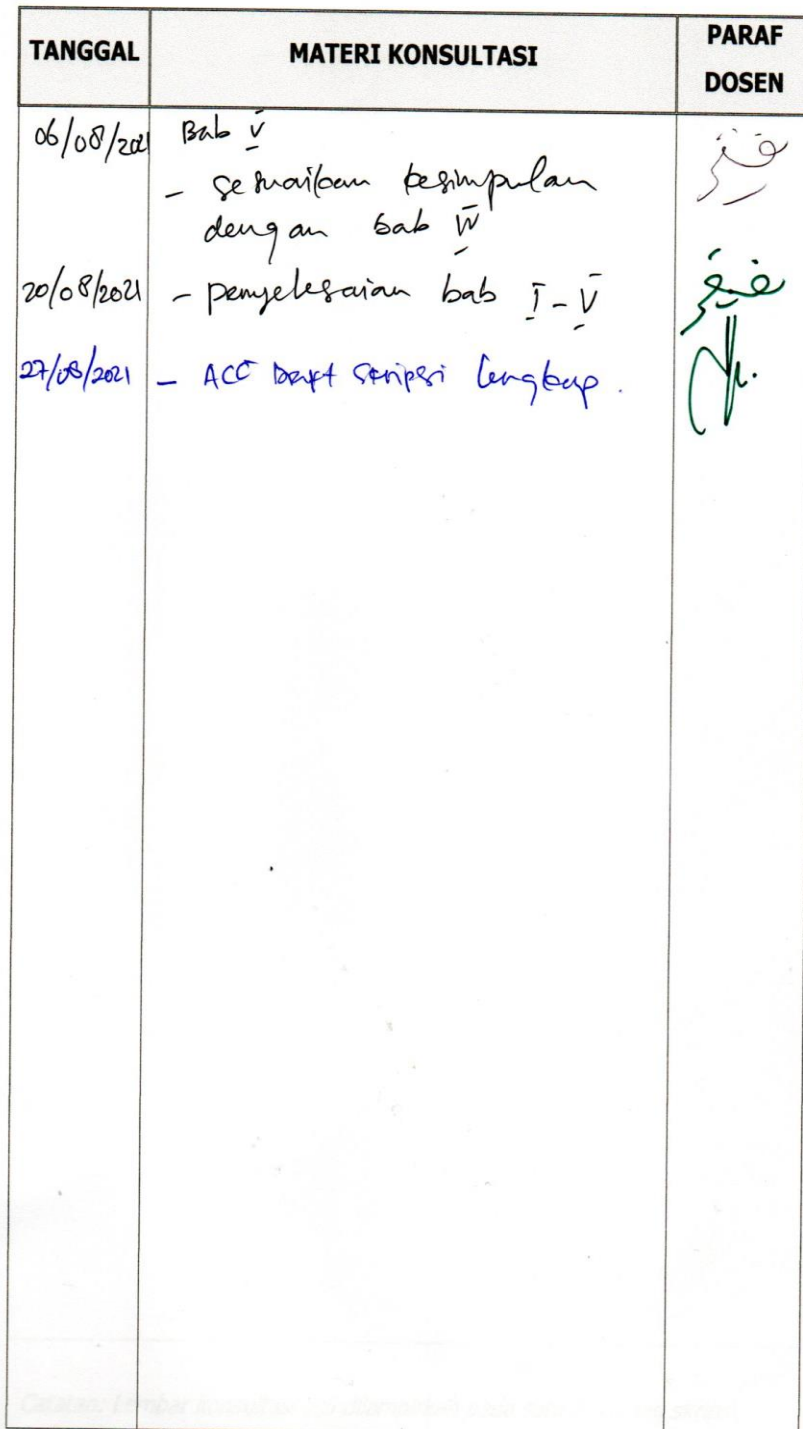 TANGGAL MATERI KONSULTASI PARAF DOSEN
06/08/2021 Bab V
- Sesuaikan kesimpulan
dengan bab IV
20/08/2021 - penyelesaian bab I - V
27/08/2021 - ACC Draft Skripsi lengkap.